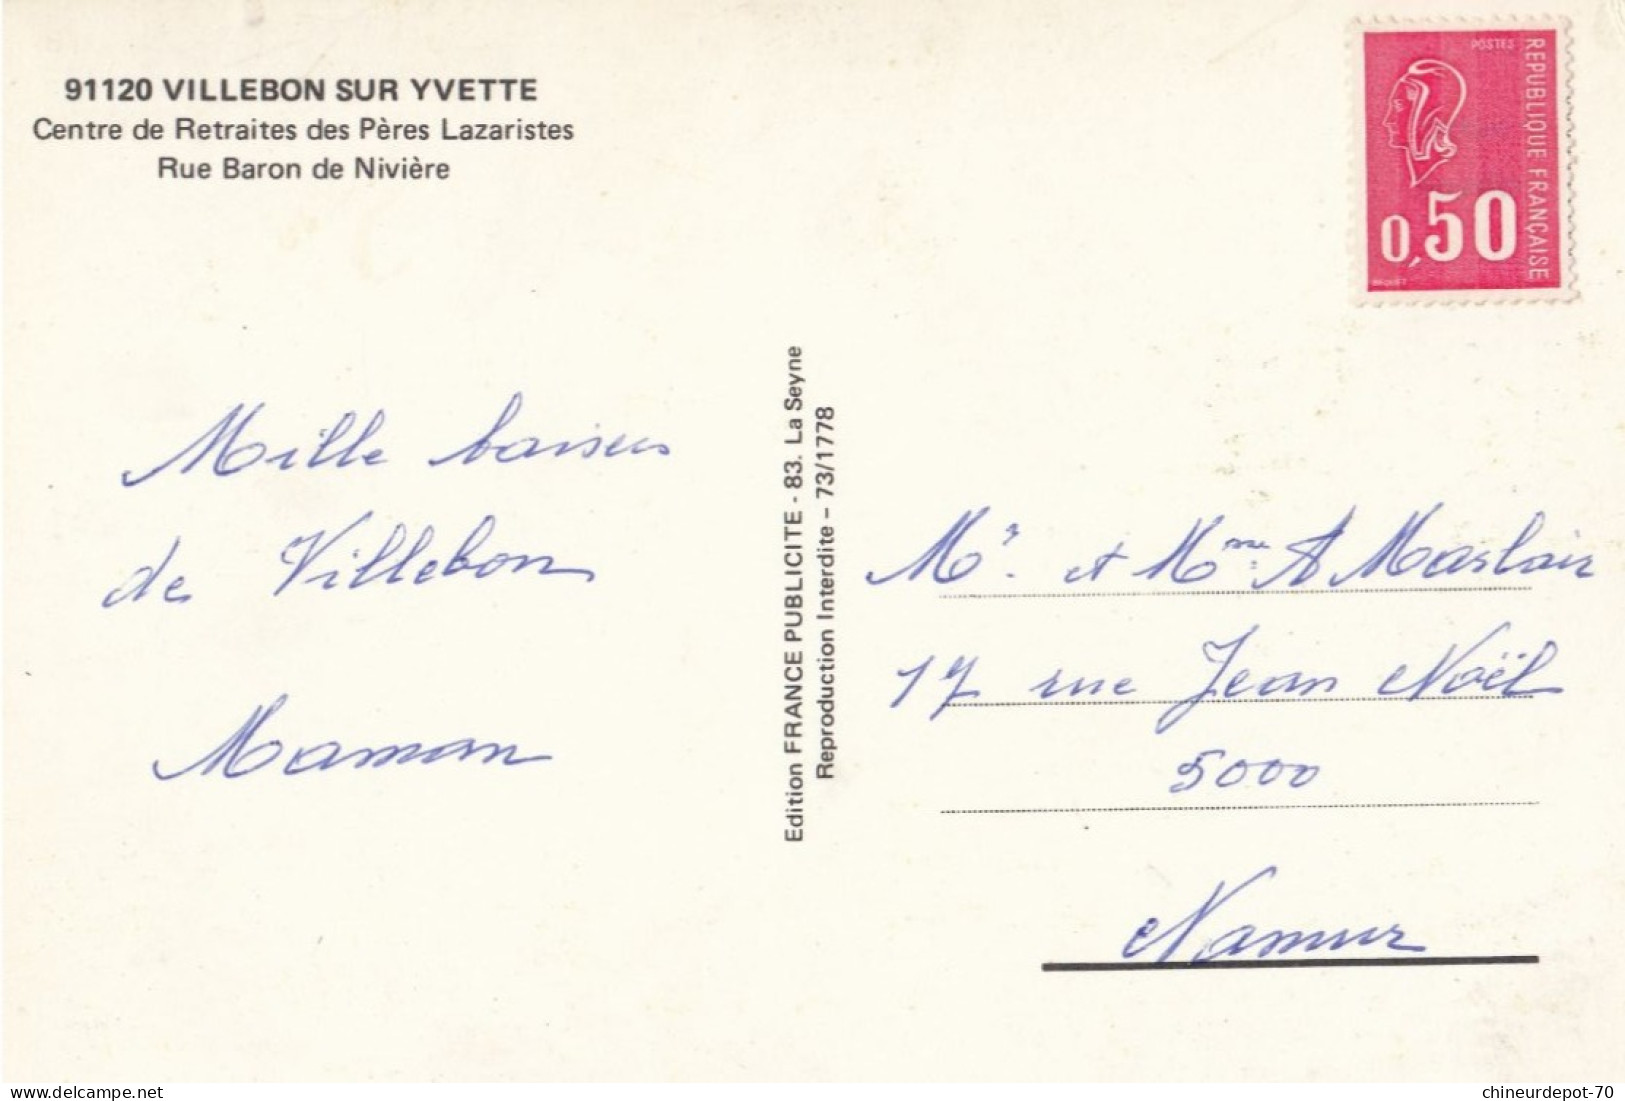 91120 VILLEBON SUR YVETTE
Centre de Retraites des Pères Lazaristes
Rue Baron de Nivière
POSTES
REPUBLIQUE FRANÇAISE
0,50
BEQUET
Mille baisers
de Villebon
Maman
Edition FRANCE PUBLICITE - 83. La Seyne
Reproduction Interdite - 73/1778
Mr. et Mme A Maslair
17 rue Jean Noël
5000
Namur
delcampe.net
chineurdepot-70